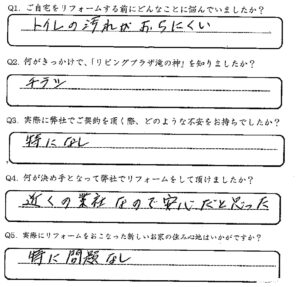 Q1. ご自宅をリフォームする前にどんなことに悩んでいましたか？
トイレの汚れがおちにくい
Q2. 何がきっかけで、「リビングプラザ滝の神」を知りましたか？
チラシ
Q3. 実際に弊社でご契約を頂く際、どのような不安をお持ちでしたか？
特になし
Q4. 何が決め手となって弊社でリフォームをして頂けましたか？
近くの業社なので安心だと思った
Q5. 実際にリフォームをおこなった新しいお家の住み心地はいかがですか？
特に問題なし